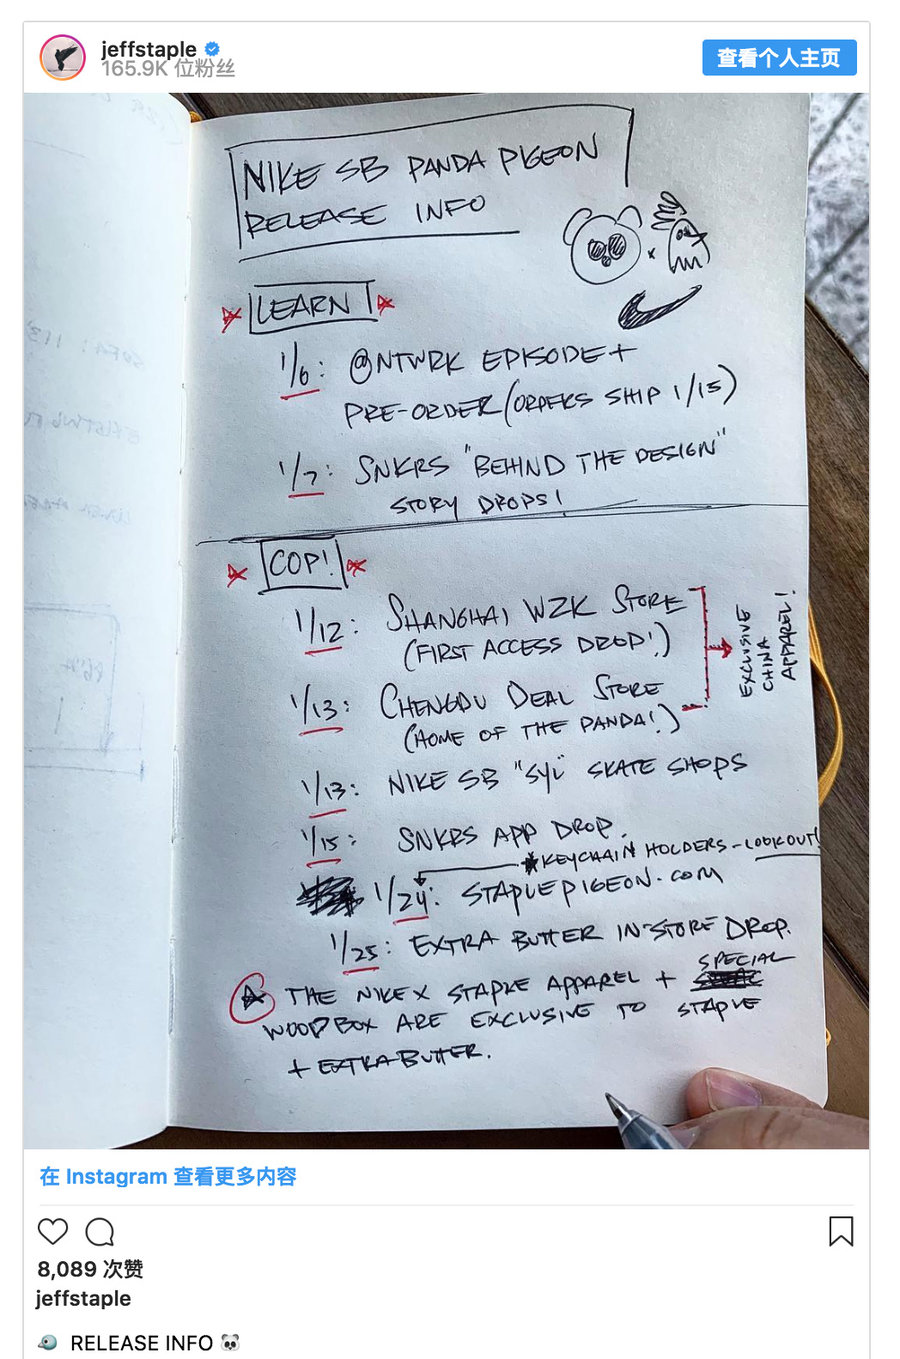 jeffstaple
165.9K 位粉丝
查看个人主页
NIKE SB PANDA PIGEON
RELEASE INFO
x
LEARN
1/6: @NTWRK EPISODE +
PRE-ORDER (ORDERS SHIP 1/15)
1/7: SNKRS "BEHIND THE DESIGN"
STORY DROPS!
COP!
1/12: SHANGHAI WZK STORE
(FIRST ACCESS DROP!)
1/13: CHENGDU DEAL STORE
(HOME OF THE PANDA!)
EXCLUSIVE
CHINA
APPAREL!
1/13: NIKE SB "SYL" SKATE SHOPS
1/15: SNKRS APP DROP.
*KEYCHAIN HOLDERS-LOOKOUT!
1/24: STAPLEPIGEON.COM
1/25: EXTRA BUTTER IN-STORE DROP.
THE NIKE X STAPLE APPAREL + SPECIAL
WOODBOX ARE EXCLUSIVE TO STAPLE
+ EXTRA BUTTER.
在 Instagram 查看更多内容
8,089 次赞
jeffstaple
RELEASE INFO